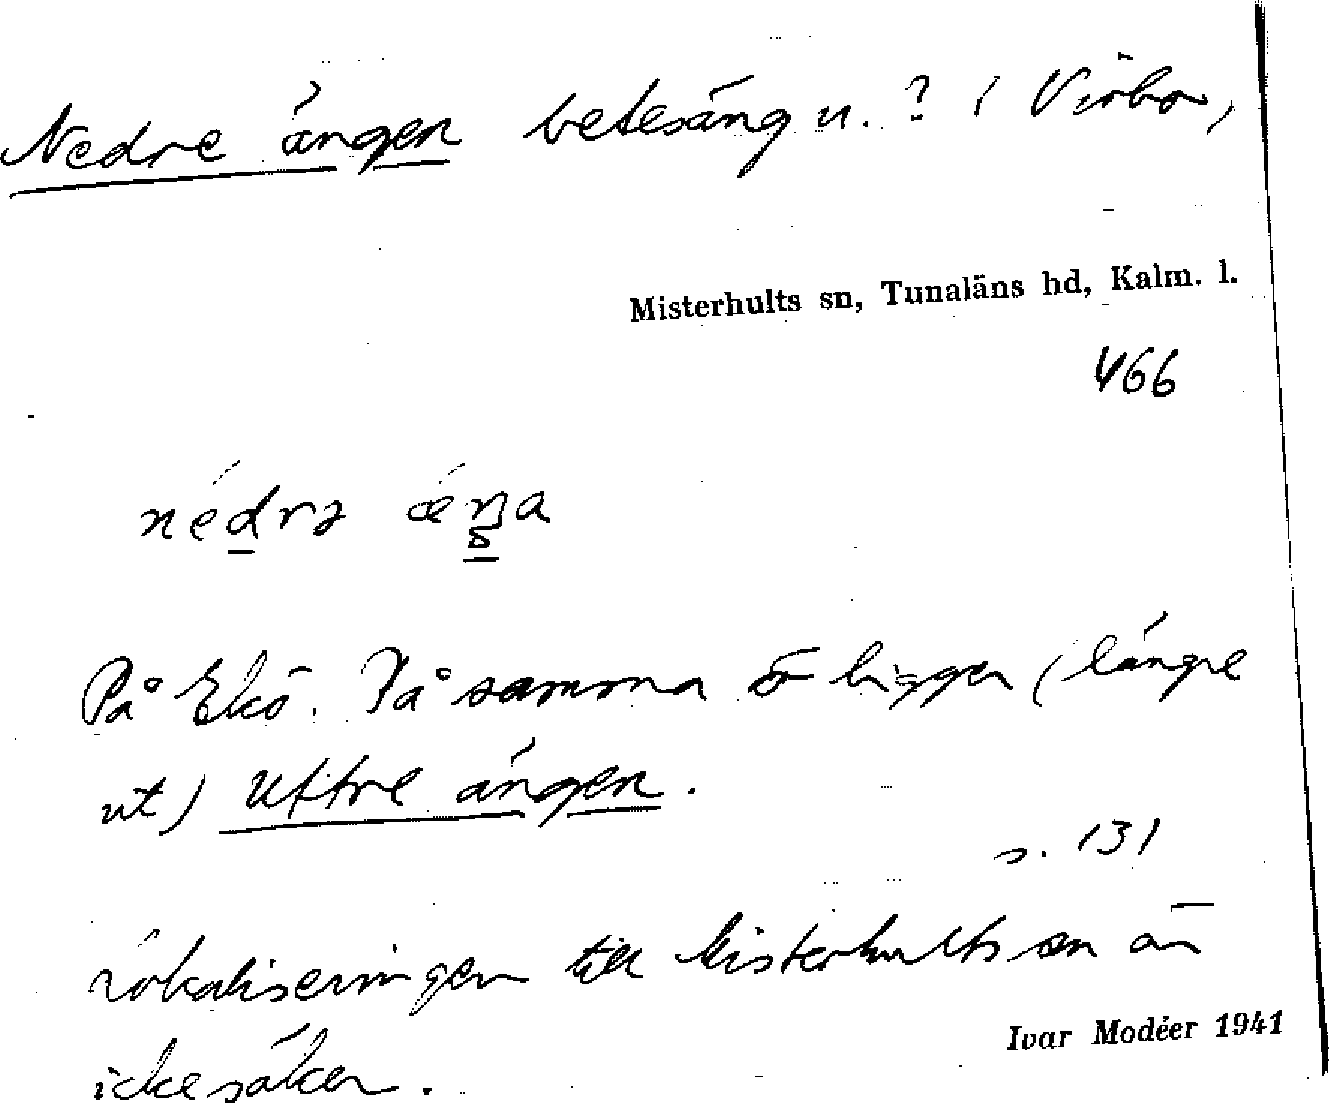 Nedre ängen betesäng u. ? i Virbo,
Misterhults sn, Tunaläns hd, Kalm. l.
466
nédrə ǽŋa
På Ekö. På samma ö ligger (längre
ut) Yttre ängen.
s. 131
Lokaliseringen till Misterhults sn är
icke säker.
Ivar Modéer 1941